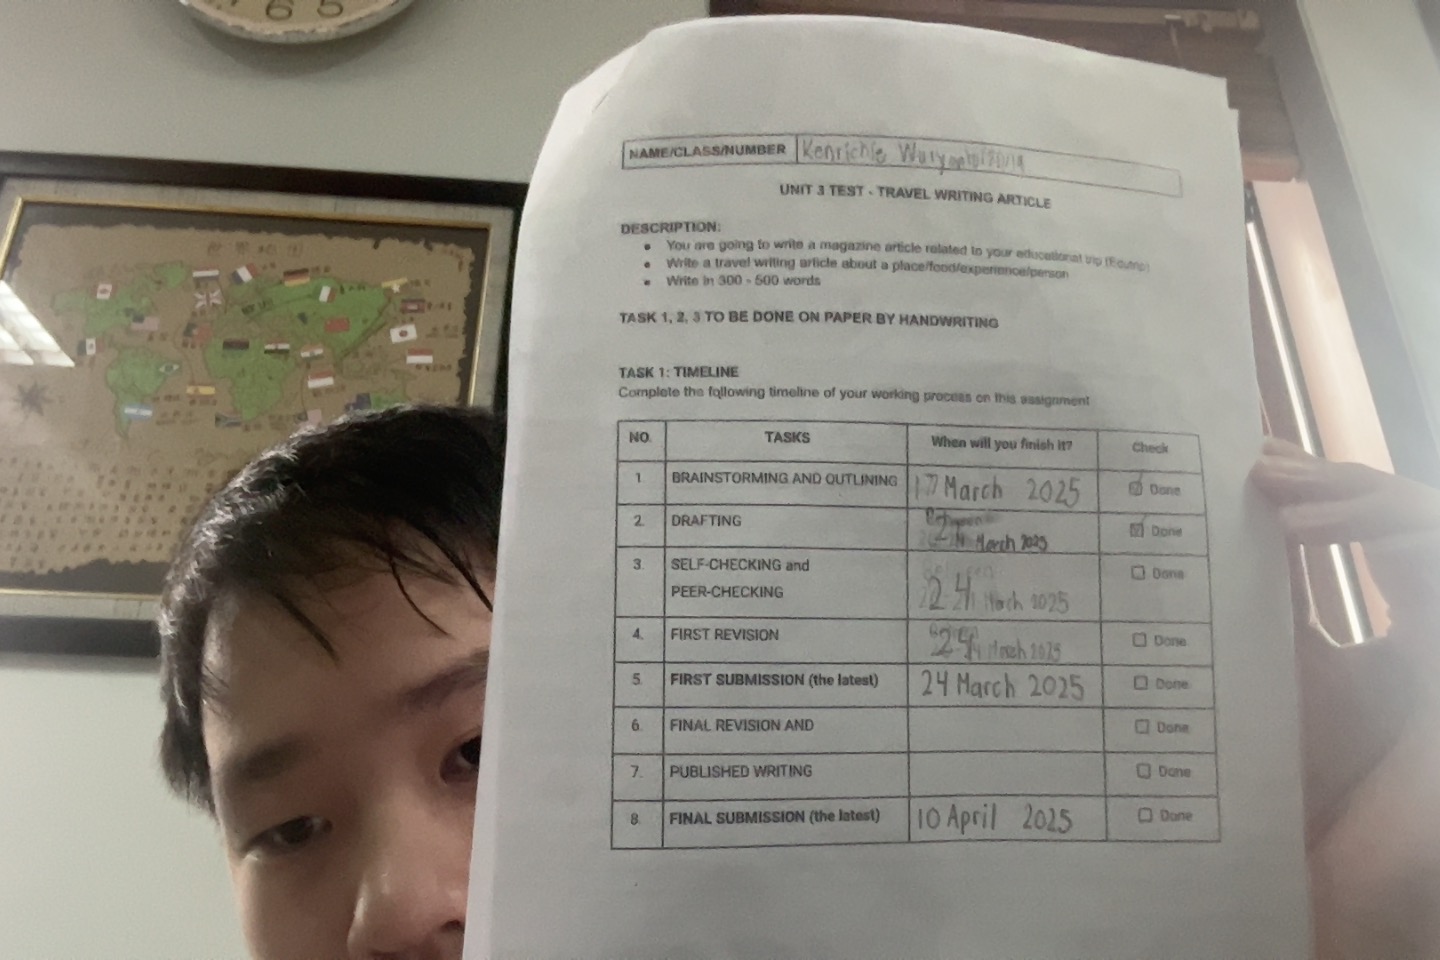 6 5
NAME/CLASS/NUMBER Kenrichie
UNIT 3 TEST - TRAVEL WRITING ARTICLE
DESCRIPTION:
You are going to write a magazine article related to your educational trip (Edutrip)
Write a travel writing article about a place/food/experience/person
Write in 300 - 500 words
TASK 1, 2, 3 TO BE DONE ON PAPER BY HANDWRITING
TASK 1: TIMELINE
Complete the following timeline of your working process on this assignment
NO. TASKS When will you finish it? Check
1 BRAINSTORMING AND OUTLINING 17 March 2025 Done
2. DRAFTING March 2025 Done
3. SELF-CHECKING and
PEER-CHECKING 24 March 2025 Done
4. FIRST REVISION 24 March 2025 Done
5. FIRST SUBMISSION (the latest) 24 March 2025 Done
6. FINAL REVISION AND Done
7. PUBLISHED WRITING Done
8. FINAL SUBMISSION (the latest) 10 April 2025 Done